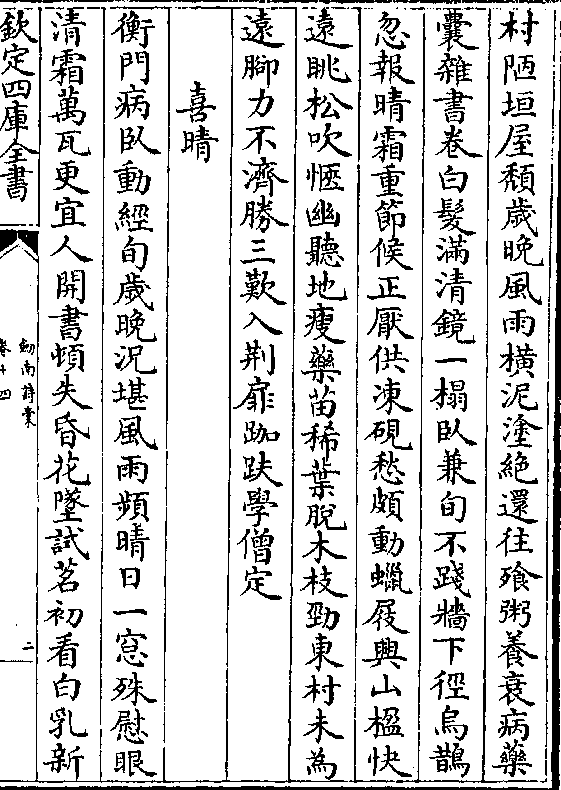 村陋垣屋頹歲晚風雨橫泥塗絕還往飱粥養衰病藥
囊雜書卷白髮滿清鏡一榻臥兼旬不踐牆下徑烏鵲
忽報晴霜重節候正厭供凍硯愁頗動蠟屐興山楹快
遠眺松吹愜幽聽地瘦藥苗稀葉脫木枝勁東村未為
遠腳力不濟勝三歎入荆扉跏趺學僧定
喜晴
衡門病臥動經旬歲晚況堪風雨頻晴日一窓殊慰眼
清霜萬瓦更宜人開書頓失昏花墜試茗初看白乳新
欽定四庫全書
劒南詩稾
卷十四
二